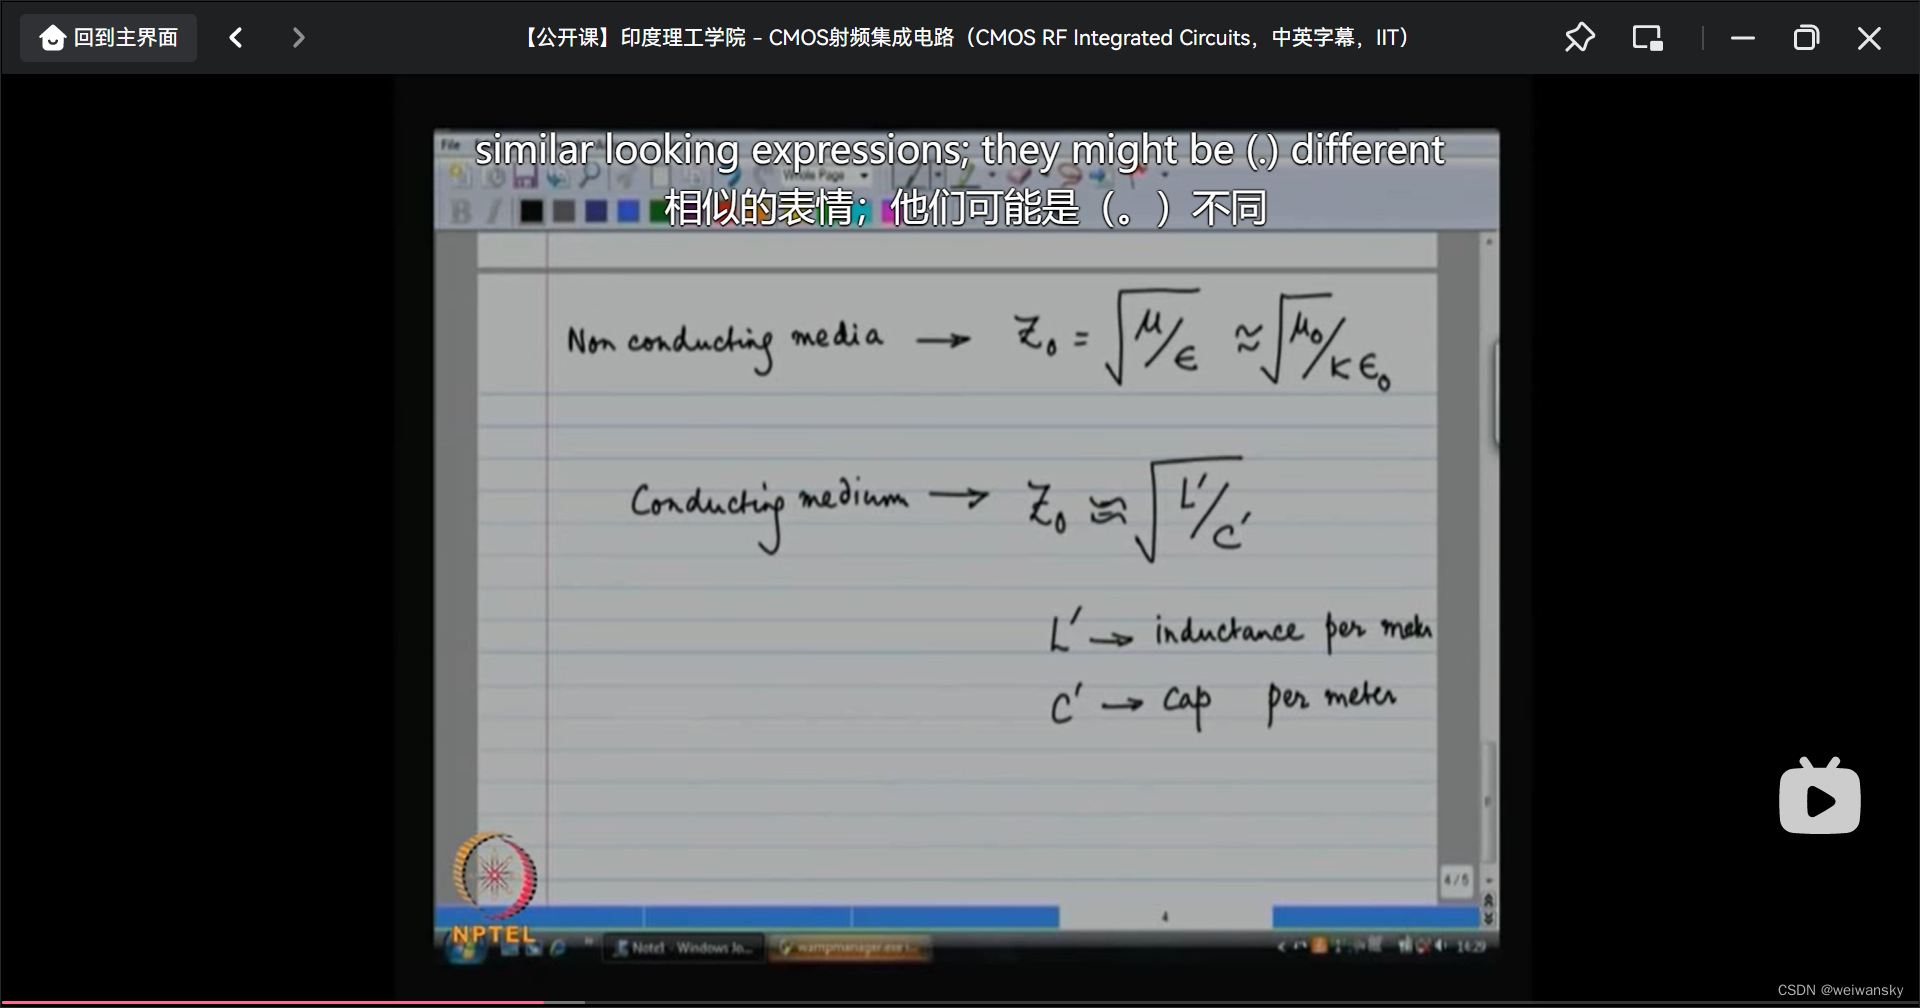 回到主界面
【公开课】印度理工学院 – CMOS射频集成电路（CMOS RF Integrated Circuits，中英字幕，IIT）
File
similar looking expressions; they might be (.) different
Whole Page
相似的表情；他们可能是（。）不同
Non conducting media → Z₀ = √μ/ε ≈ √μ₀/κε₀
Conducting medium → Z₀ ≈ √L'/C'
L' → inductance per meter
C' → cap per meter
4/5
4
NPTEL
Note1 - Windows Jo...
wampmanager.exe
14:29
CSDN @weiwansky